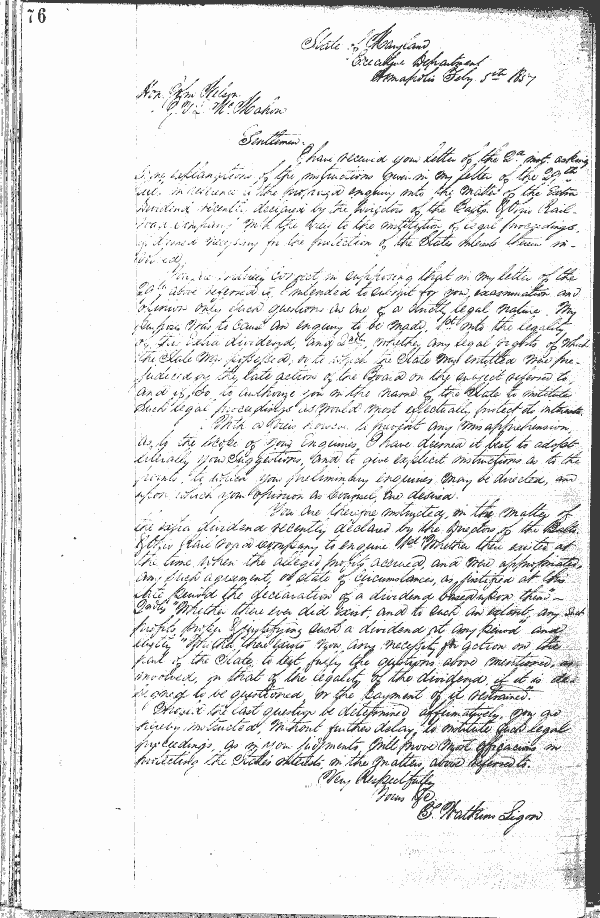 76
State of Maryland
Executive Department
Annapolis Feby 5th 1857
Hon. John Nelson
J. V. L. McMahon
Gentlemen.
I have received your letter of the 2d inst. asking
explanations of the instructions given in my letter of the 29th
ult. in reference to the proposed enquiry into the matter of the Extra
dividend recently declared by the Directors of the Balto. & Ohio Rail-
road Company with the view to the institution of legal proceedings,
if deemed necessary for the protection of the States interests therein in-
volved.
You are entirely correct in supposing that in my letter of the
29th above referred to, I intended to submit for your examination and
opinion only such questions as are of a strictly legal nature. My
purpose was to cause an enquiry to be made, 1st into the legality
of the extra dividend, and 2dly, whether any legal rights of which
the State was possessed, or to which the State was entitled was pre-
judiced by the late action of the Board on the subject referred to,
and if so, to authorize you in the name of the State to institute
such legal proceedings as would most effectually protect its interests.
With a view however to prevent any misapprehension,
as to the scope of your enquiries, I have deemed it best to adopt
literally your suggestions, and to give explicit instructions as to the
points, to which your preliminary enquiries may be directed, and
upon which your opinion as Counsel, are desired.
You are therefore instructed, in the matter of
the extra dividend recently declared by the Directors of the Balto.
& Ohio Rail road Company to enquire 1st Whether there existed at
the time when the alleged profits accrued, and were appropriated
any such agreement, or state of circumstances, as justified at this
late period the declaration of a dividend based upon them -
2dly Whether there ever did exist, and to such an extent, any such
profits proper & justifying such a dividend at any period and
Whether there exists now, any necessity for action on the
part of the State, to test fully the questions above mentioned, as
involved, in that of the legality of the dividend, if it is de-
signed to be questioned, or the payment of it restrained.
Should the last question be determined affirmatively, you are
hereby instructed, without further delay, to institute such legal
proceedings, as in your judgments, will prove most efficacious in
protecting the States interests in the matters, above referred to.
Very Respectfully
Yours &c
T. Watkins Ligon